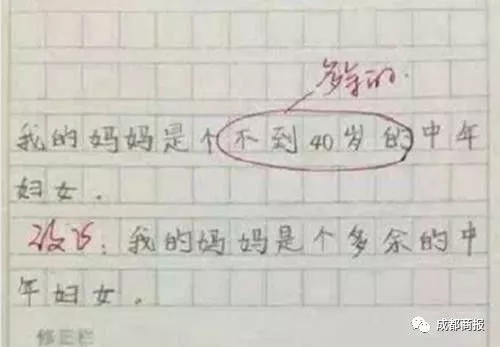 多余的.
我的妈妈是个不到40岁的中年
妇女.
改正:我的妈妈是个多余的中
年妇女.
修正栏
成都商报